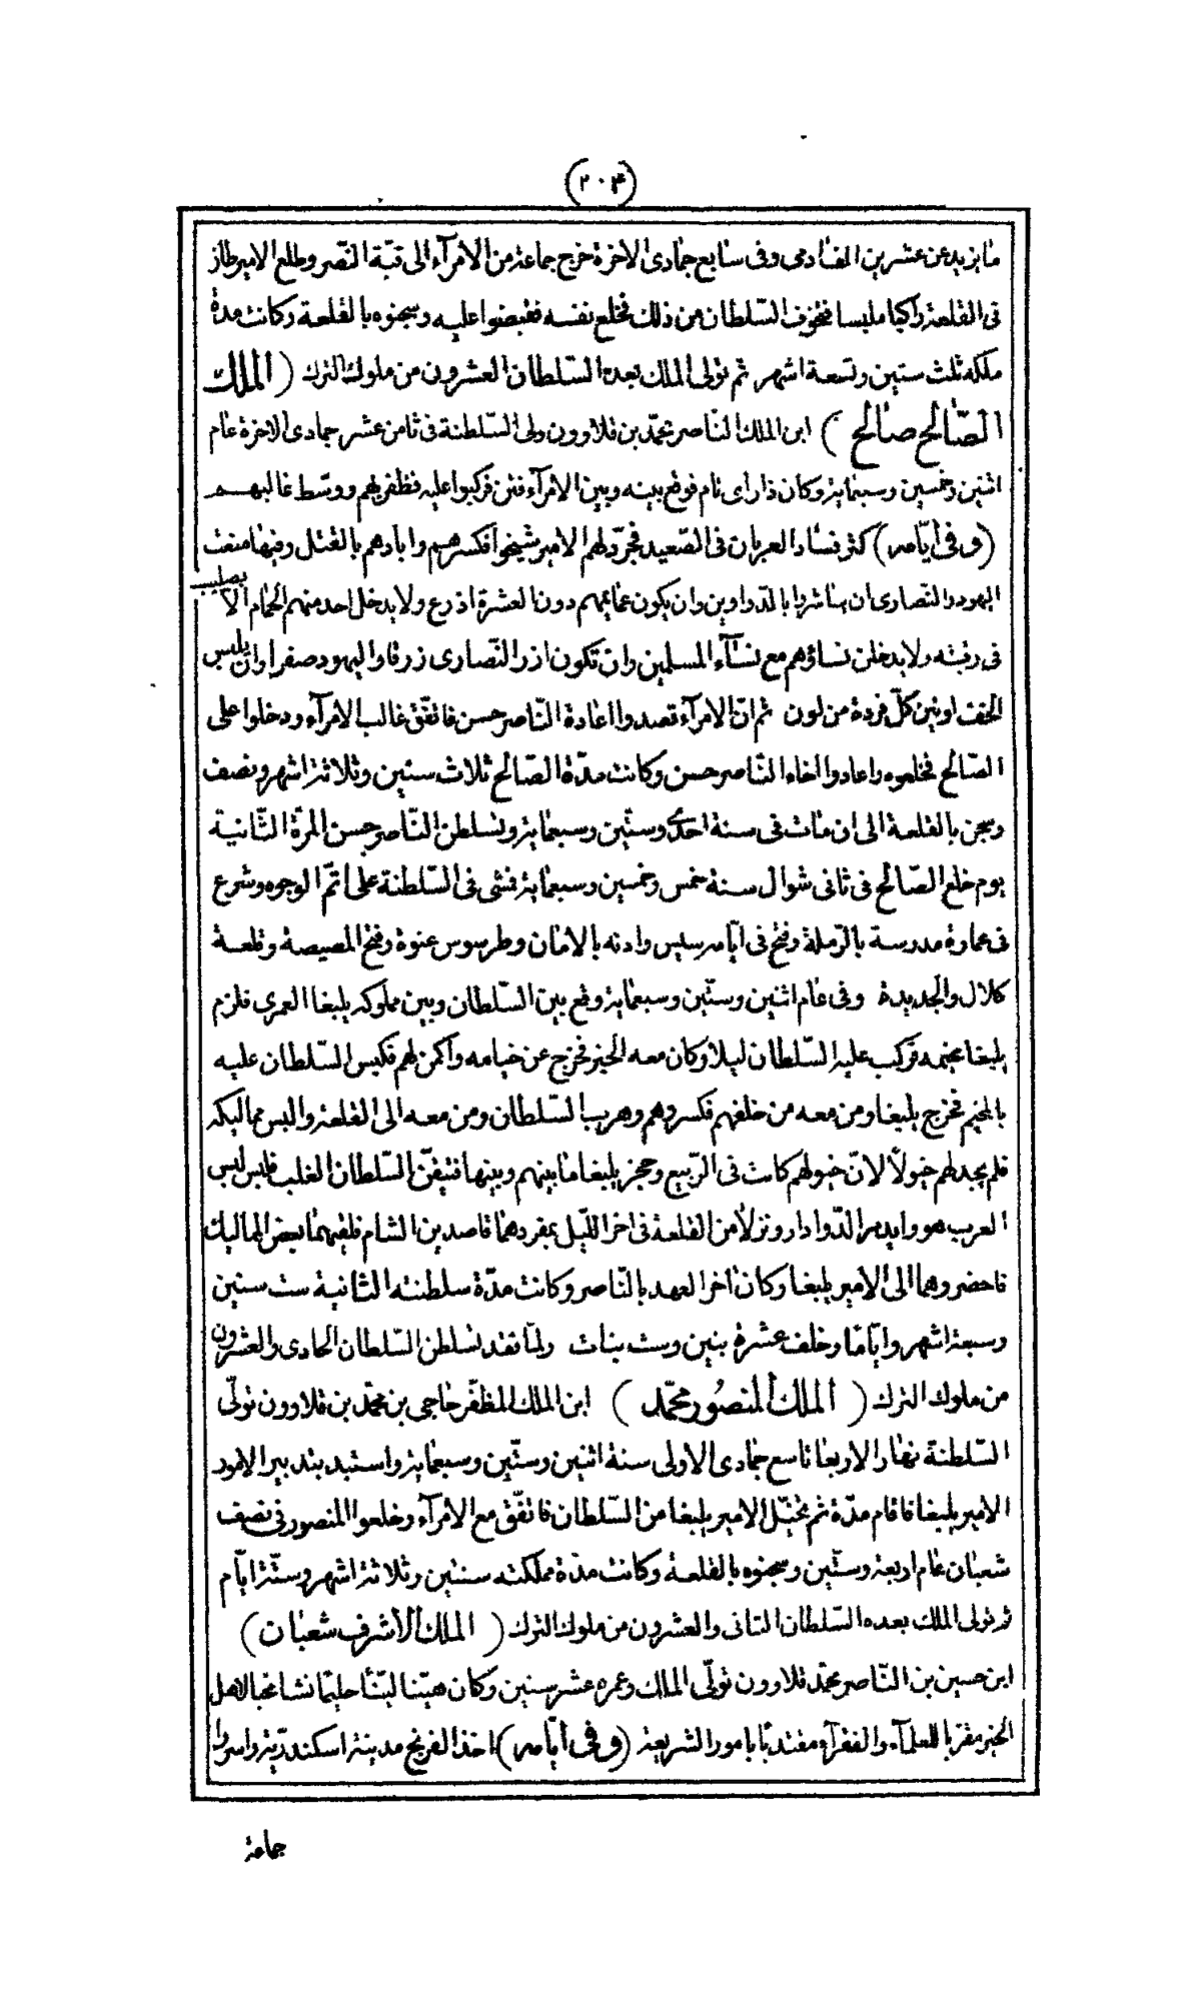 (٢٠٤)
ما يزيد عن عشرين الف ادمى وفى سابع جمادى الاخرة خرج جماعة من الامرآء الى قبّة النّصر وطلع الامير طاز
فى القلعة راكبا ملبسا فتخوف السّلطان من ذلك فخلع نفسه فقبضوا عليه وسجنوه بالقلعة وكانت مدة
ملكه ثلث سنين وتسعة اشهر ثم تولى الملك بعده السّلطان العشرون من ملوك الترك (الملك
الصّالح صالح) ابن الملك النّاصر محمّد بن قلاوون ولى السّلطنة فى ثامن عشر جمادى الاخرة عام
اثنين وخمسين وسبعماية وكان ذا راى تام فوقع بينه وبين الامرآء فتن فركبوا عليه فظفر بهم ووسّط غالبهم
(وفى أيّامه) كثر فساد العربان فى الصّعيد فجرّد لهم الامير شيخو فكسرهم وابادهم بالقتل وفيها منعت
اليهود والنصارى ان يباشروا بالدّواوين وان يكون عمايمهم دون العشرة اذرع ولا يدخل احد منهم الحمام الا بصليب
فى رقبته ولا يدخلن نساؤهم مع نسآء المسلمين وان تكون ازر النّصارى زرقا واليهود صفرا وان يلبس
الخف لونين كلّ فردة من لون ثم انّ الامرآء قصدوا اعادة النّاصر حسن فاتفّق غالب الامرآء ودخلوا على
الصّالح فخلعوه واعادوا اخاه النّاصر حسن وكانت مدّة الصّالح ثلاث سنين وثلاثة اشهر ونصف
وسجن بالقلعة الى ان مات فى سنة احدى وستّين وسبعماية وتسلطن النّاصر حسن المرّة الثّانية
يوم خلع الصّالح فى ثانى شوال سنة خمس وخمسين وسبعماية فمشى فى السّلطنة على اتمّ الوجوه وشرع
فى عمارة مدرسة بالرّملة وفتح فى ايّامه سيس وادنه بالامان وطرسوس عنوة وفتح المصيصة وقلعة
كلال والجديدة وفى عام اثنين وستّين وسبعماية وقع بين السّلطان وبين مملوكه يلبغا العمرى فلزم
يلبغا مخيمه فركب عليه السّلطان ليلا وكان معه الخبر فخرج عن خيامه واكمن لهم فكبس السّلطان عليه
بالمخيم فخرج يلبغا ومن معه من خلفهم فكسروهم وهرب السّلطان ومن معه الى القلعة والبس مماليكه
فلم يجد لهم خيولاً لانّ خيولهم كانت فى الرّبيع وحجز يلبغا ما بينهم وبينها فتيقّن السّلطان الغلب فلبس لبس
العرب هو وايدمر الدّوادار ونزلا من القلعة فى اخر اللّيل بمفردهما قاصدين الشام فلقيهما بعض المماليك
فاحضروهما الى الامير يلبغا وكان اخر العهد بالنّاصر وكانت مدّة سلطنته الثانية ست سنين
وسبعة اشهر وايّاما وخلف عشرة بنين وست بنات ولمّا فقد تسلطن السّلطان الحادى والعشرون
من ملوك الترك (الملك المنصور محمّد) ابن الملك المظفّر حاجى بن محمّد بن قلاوون تولّى
السّلطنة نهار الاربعا تاسع جمادى الاولى سنة اثنين وستّين وسبعماية واستبد بتدبير الامور
الامير يلبغا فاقام مدّة ثم تخيّل الامير يلبغا من السّلطان فاتفّق مع الامرآء وخلعوا المنصور فى نصف
شعبان عام اربعة وستّين وسجنوه بالقلعة وكانت مدّة مملكته سنتين وثلاثة اشهر وستّة ايّام
ثم تولى الملك بعده السّلطان الثانى والعشرون من ملوك الترك (الملك الأشرف شعبان)
ابن حسين بن النّاصر محمّد قلاوون تولّى الملك وعمره عشر سنين وكان هيّنا ليّنا حليما نشا محبا لاهل
الخير مقربا للعلمآء والفقرآء مقتديًا بامور الشريعة (وفى أيّامه) اخذ الفرنج مدينة اسكندريّة واسروا
جماعة